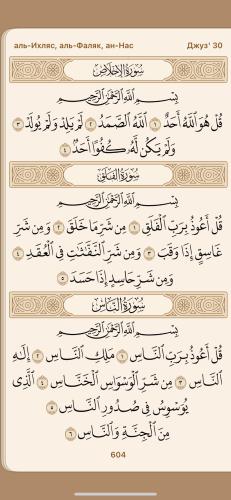 аль-Ихляс, аль-Фаляк, ан-Нас Джуз' 30
سُورَةُ الإِخْلَاصِ
بِسْمِ ٱللَّهِ ٱلرَّحْمَٰنِ ٱلرَّحِيمِ
قُلْ هُوَ ٱللَّهُ أَحَدٌ ١ ٱللَّهُ ٱلصَّمَدُ ٢ لَمْ يَلِدْ وَلَمْ يُولَدْ ٣
وَلَمْ يَكُن لَّهُۥ كُفُوًا أَحَدٌۢ ٤
سُورَةُ الفَلَقِ
بِسْمِ ٱللَّهِ ٱلرَّحْمَٰنِ ٱلرَّحِيمِ
قُلْ أَعُوذُ بِرَبِّ ٱلْفَلَقِ ١ مِن شَرِّ مَا خَلَقَ ٢ وَمِن شَرِّ
غَاسِقٍ إِذَا وَقَبَ ٣ وَمِن شَرِّ ٱلنَّفَّٰثَٰتِ فِى ٱلْعُقَدِ ٤
وَمِن شَرِّ حَاسِدٍ إِذَا حَسَدَ ٥
سُورَةُ النَّاسِ
بِسْمِ ٱللَّهِ ٱلرَّحْمَٰنِ ٱلرَّحِيمِ
قُلْ أَعُوذُ بِرَبِّ ٱلنَّاسِ ١ مَلِكِ ٱلنَّاسِ ٢ إِلَٰهِ
ٱلنَّاسِ ٣ مِن شَرِّ ٱلْوَسْوَاسِ ٱلْخَنَّاسِ ٤ ٱلَّذِى
يُوَسْوِسُ فِى صُدُورِ ٱلنَّاسِ ٥
مِنَ ٱلْجِنَّةِ وَٱلنَّاسِ ٦
604